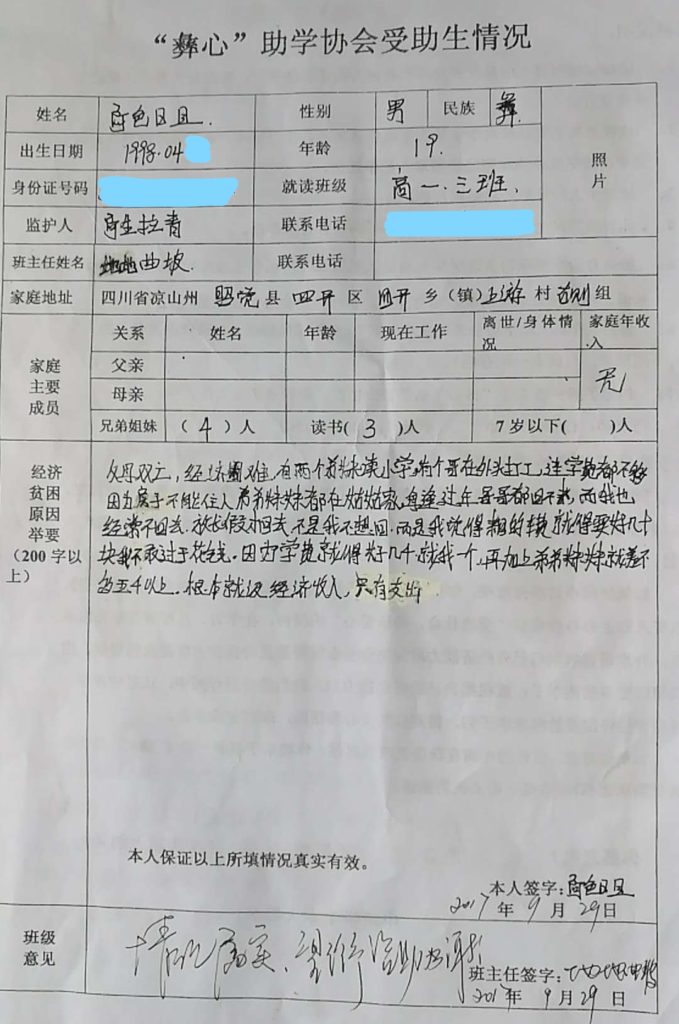 “彝心”助学协会受助生情况
姓名 色日且. 性别 男 民族 彝 照片
出生日期 1998.04 年龄 19.
身份证号码 就读班级 高一.三班.
监护人 拉青 联系电话
班主任姓名 曲坡. 联系电话
家庭地址 四川省凉山州 昭觉 县 四开 区 四开 乡（镇）上游 村 组
家庭主要成员 关系 姓名 年龄 现在工作 离世/身体情况 家庭年收入
父亲 无
母亲
兄弟姐妹 （ 4 ）人 读书( 3 )人 7岁以下( )人
经济贫困原因举要（200字以上）
父母双亡，经济困难，有两个弟妹读小学，有个哥在外头打工，连学费都不够
因为房子不能住人弟弟妹妹都在姑姑家，每逢过年哥哥都回不来，而我也
经常不回去，放长假才回去，不是我不想回，而是我觉得 的钱就得要好几十
块我不敢过于花钱。因为学费就得好几千就我一个，再加上弟弟妹妹就差不
多五千以上，根本就没经济收入，只有支出.
本人保证以上所填情况真实有效。
本人签字: 色日且
2017 年 9 月 29 日
班级意见 情况属实、望给予资助为谢
班主任签字:
2017 年 9 月 29 日